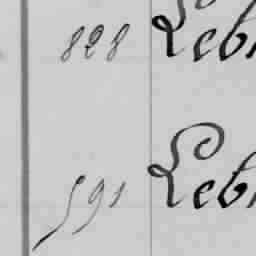 828 Leb
591 Leb